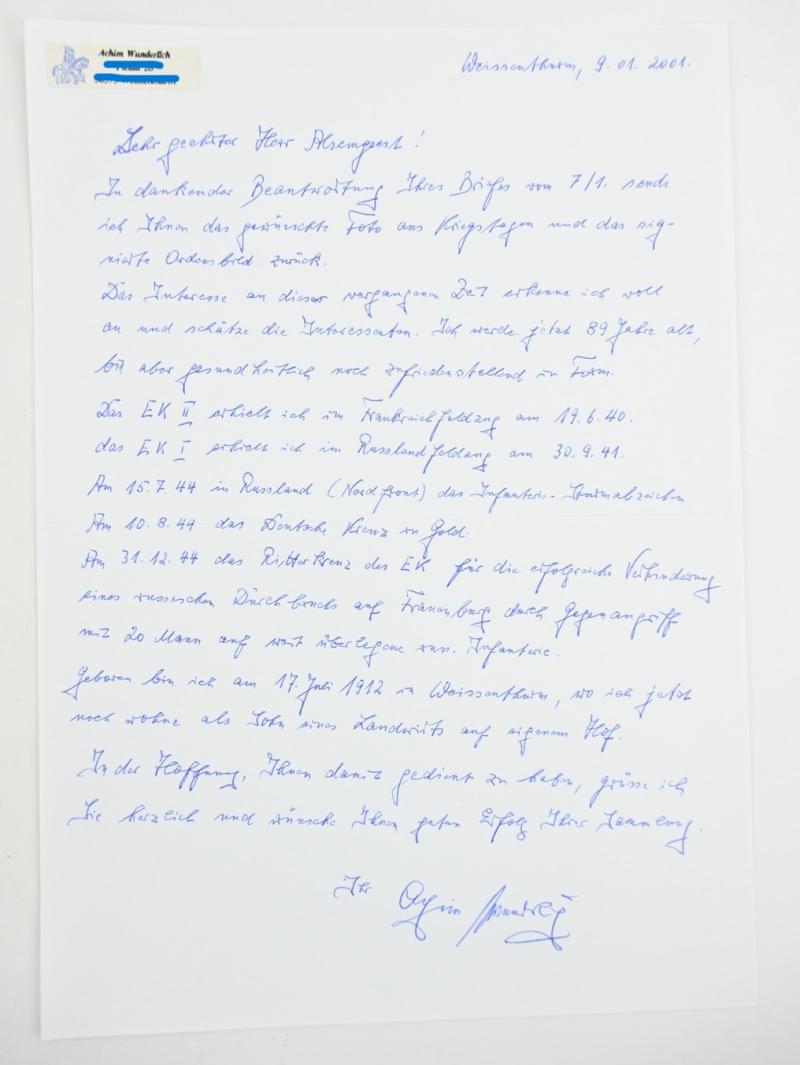 Achim Wunderlich
Weissenthurm, 9.01.2001.
Sehr geehrter Herr Alsemgeest!
In dankender Beantwortung Ihres Briefes vom 7/1. sende
ich Ihnen das gewünschte Foto aus Kriegstagen und das sig-
nierte Ordensbild zurück.
Das Interesse an dieser vergangenen Zeit erkenne ich voll
an und schätze die Interessenten. Ich werde jetzt 89 Jahre alt,
bin aber gesundheitlich noch zufriedenstellend in Form.
Das EK II erhielt ich im Frankreichfeldzug am 19.6.40.
das EK I erhielt ich im Russlandfeldzug am 30.9.41.
Am 15.7.44 in Russland (Nordfront) das Infanterie-Sturmabzeichen
Am 10.8.44 das Deutsche Kreuz in Gold.
Am 31.12.44 das Ritterkreuz des EK für die erfolgreiche Verhinderung
eines russischen Durchbruchs auf Frauenburg durch Gegenangriff
mit 20 Mann auf weit überlegene russ. Infanterie.
Geboren bin ich am 17. Juli 1912 in Weissenthurm, wo ich jetzt
noch wohne als Sohn eines Landwirts auf eigenem Hof.
In der Hoffnung, Ihnen damit gedient zu haben, grüsse ich
Sie herzlich und wünsche Ihnen guten Erfolg Ihrer Sammlung.
Ihr Achim Wunderlich